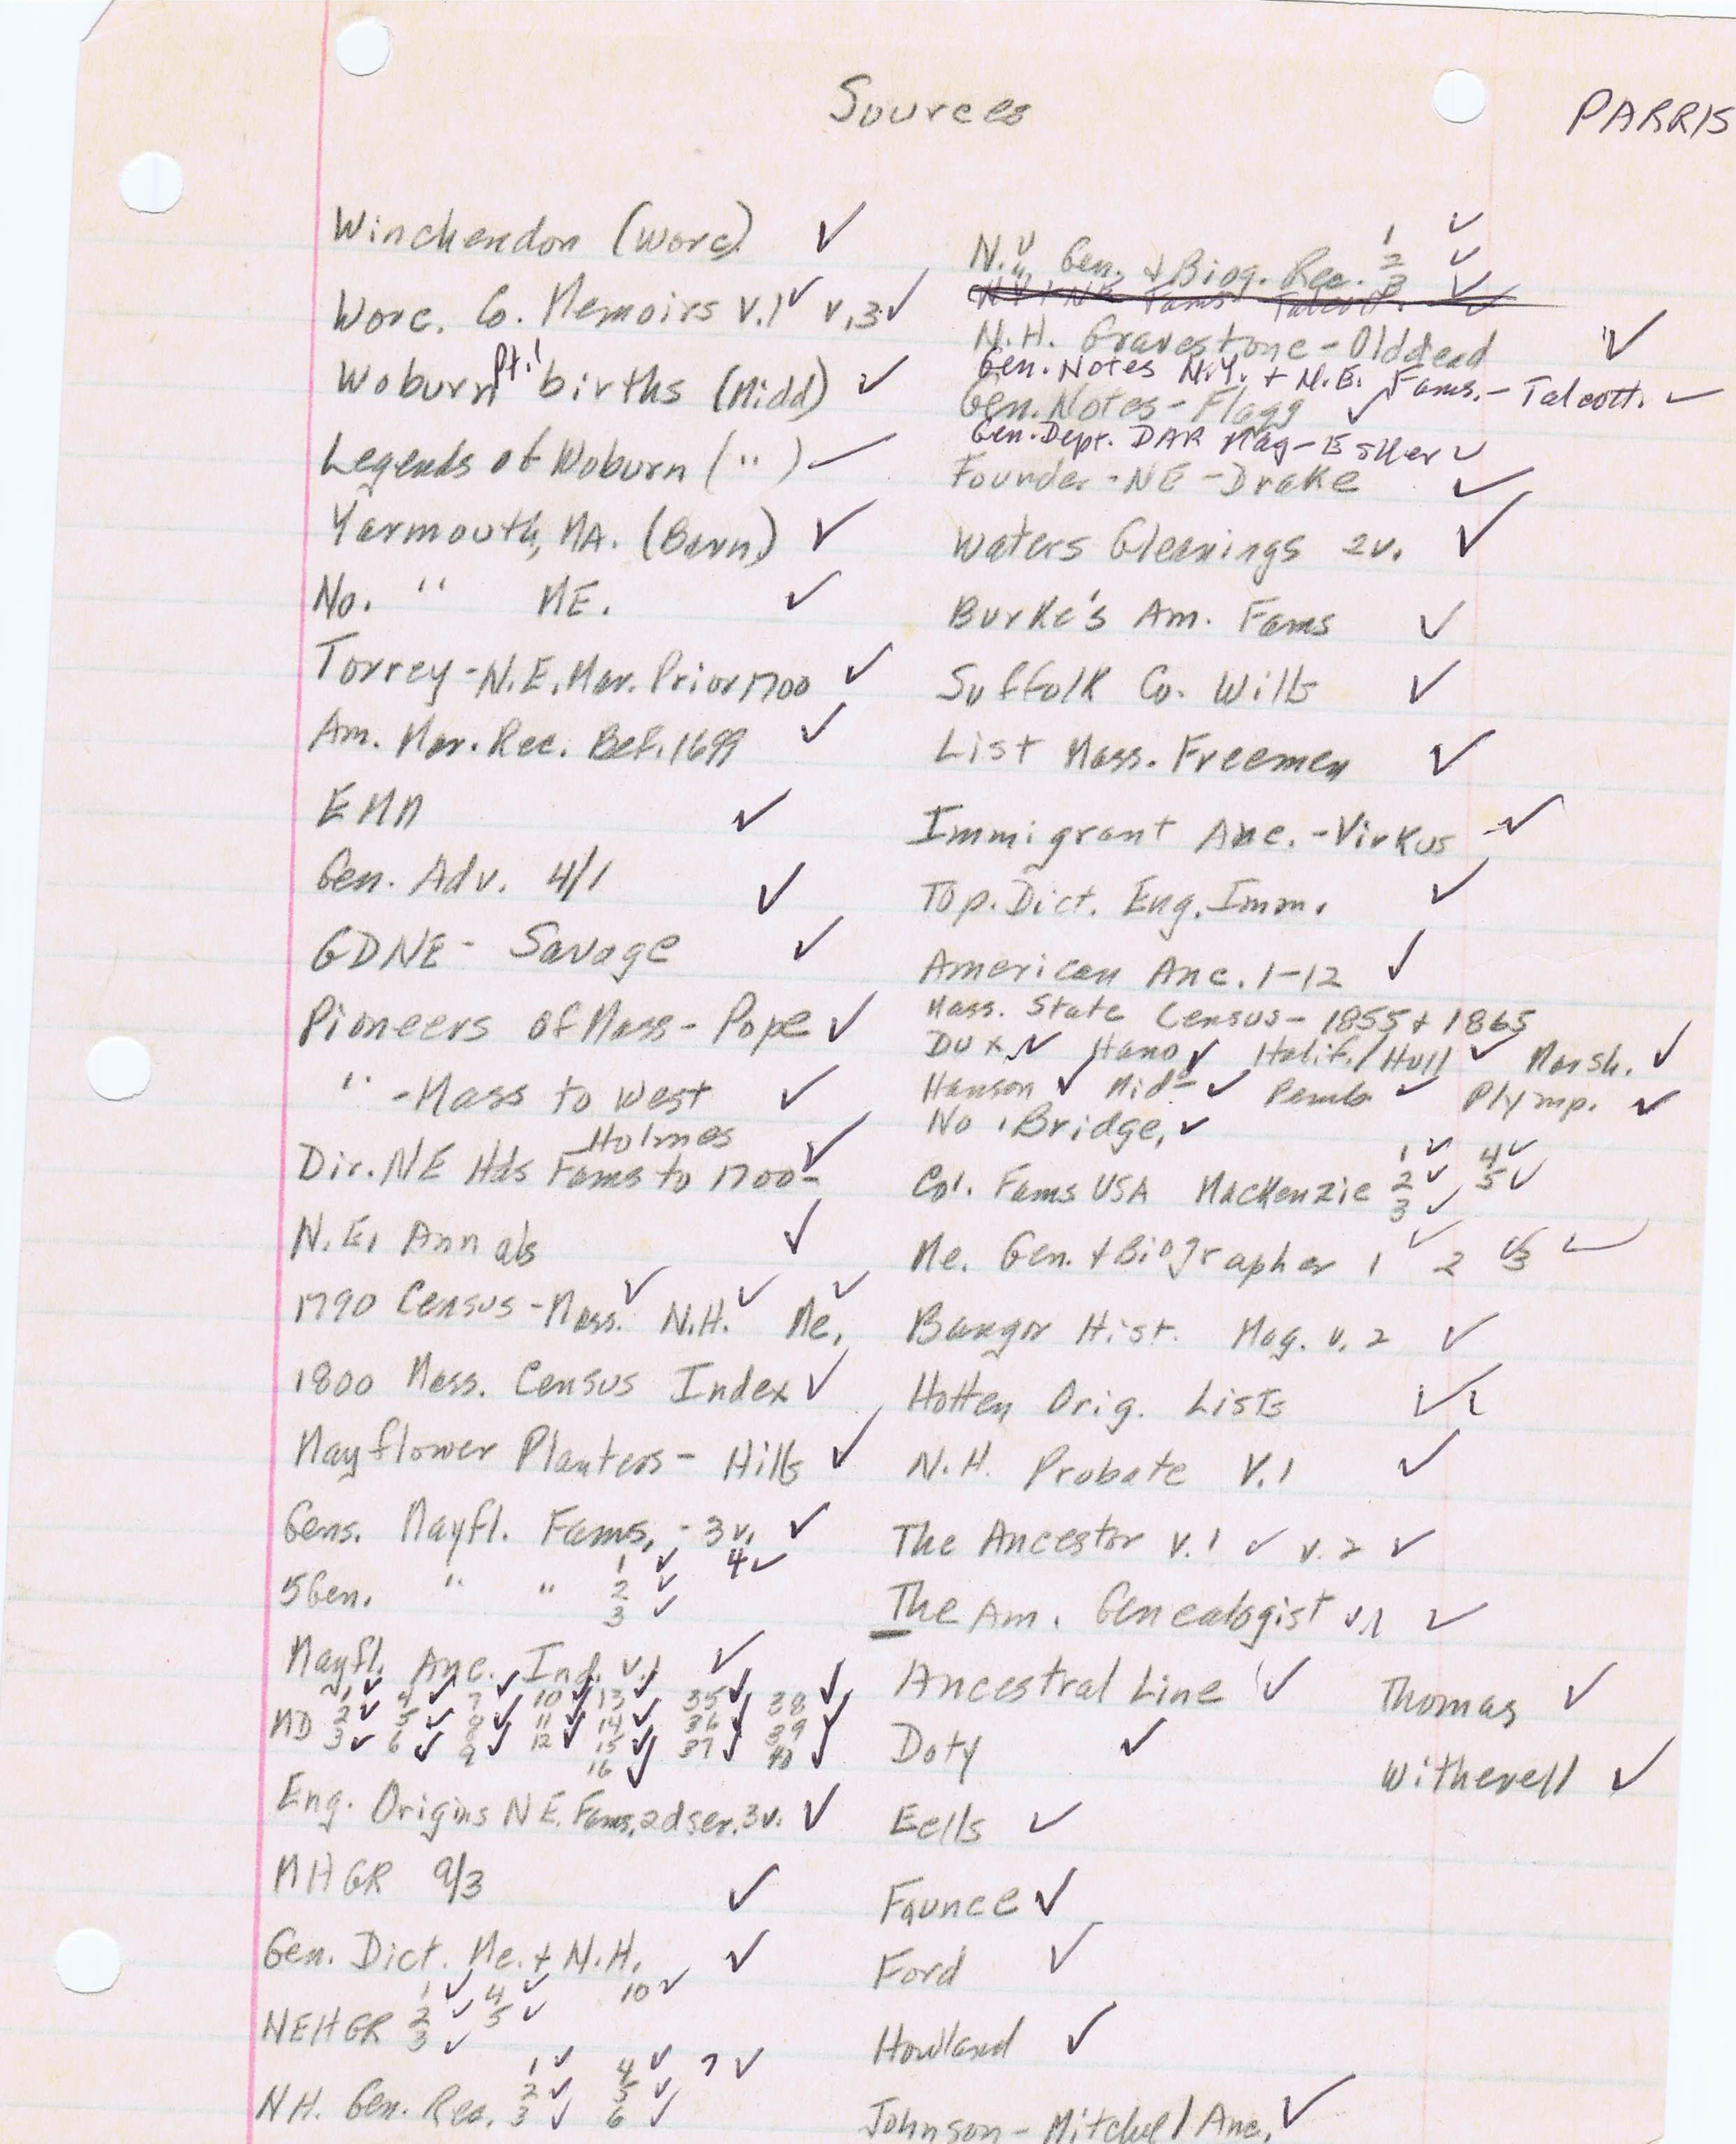 Sources
PARRIS
Winchendon (Worc) ✓
Worc. Co. Memoirs v.1 ✓ v.3 ✓
Woburn pt.1 births (Midd) ✓
Legends of Woburn ( " ) ✓
Yarmouth, MA. (Barn) ✓
No. " ME. ✓
Torrey - N.E. Mar. Prior 1700 ✓
Am. Mar. Rec. Bef. 1699 ✓
EMM ✓
Gen. Adv. 4/1 ✓
GDNE - Savage ✓
Pioneers of Mass - Pope ✓
" - Mass to West ✓
Holmes
Dir. NE Hds Fams to 1700- ✓
N.E. Annals ✓
1790 Census - Mass. ✓ N.H. ✓ Me. ✓
1800 Mass. Census Index ✓
Mayflower Planters - Hills ✓
Gens. Mayfl. Fams. - 3v. ✓
5 Gen. " " 1 ✓ 2 ✓ 3 ✓ 4 ✓
Mayfl. Anc. Ind. v.1 ✓
MD 1 ✓ 4 ✓ 7 ✓ 10 ✓ 13 ✓ 35 ✓ 38 ✓
2 ✓ 5 ✓ 8 ✓ 11 ✓ 14 ✓ 36 ✓ 39 ✓
3 ✓ 6 ✓ 9 ✓ 12 ✓ 15 ✓ 37 ✓ 40 ✓
16 ✓
Eng. Origins NE. Fams. 2d ser. 3v. ✓
MHGR 9/3 ✓
Gen. Dict. Me. + N.H. ✓
NEHGR 1 ✓ 2 ✓ 3 ✓ 4 ✓ 5 ✓ 10 ✓
NH. Gen. Rec. 1 ✓ 2 ✓ 3 ✓ 4 ✓ 5 ✓ 6 ✓ 7 ✓
N.Y. Gen. + Biog. Rec. 1 ✓ 2 ✓ 3 ✓
N.Y. + NE Fams Talcott. ✓
N.H. Gravestone - Olddead ✓
Gen. Notes N.Y. + N.E. Fams. - Talcott. ✓
Gen. Notes - Flagg ✓
Gen. Dept. DAR Mag - Esther ✓
Founder - NE - Drake ✓
Waters Gleanings 2v. ✓
Burke's Am. Fams ✓
Suffolk Co. Wills ✓
List Mass. Freemen ✓
Immigrant Anc. - Virkus ✓
Top. Dict. Eng. Imm. ✓
American Anc. 1-12 ✓
Mass. State Census - 1855 + 1865
Dux ✓ Hano ✓ Halif. / Hull ✓ Marsh. ✓
Hanson ✓ Mid ✓ Pemb. ✓ Plymp. ✓
No. Bridge. ✓
Col. Fams USA MacKenzie 1 ✓ 2 ✓ 3 ✓ 4 ✓ 5 ✓
Me. Gen. + Biographer 1 ✓ 2 ✓ 3 ✓
Bangor Hist. Mag. v. 2 ✓
Hotten Orig. Lists ✓
N.H. Probate V.1 ✓
The Ancestor v.1 ✓ v.2 ✓
The Am. Genealogist ✓
Ancestral Line ✓
Doty ✓
Eells ✓
Faunce ✓
Ford ✓
Howland ✓
Johnson - Mitchel / Anc. ✓
Thomas ✓
Witherell ✓